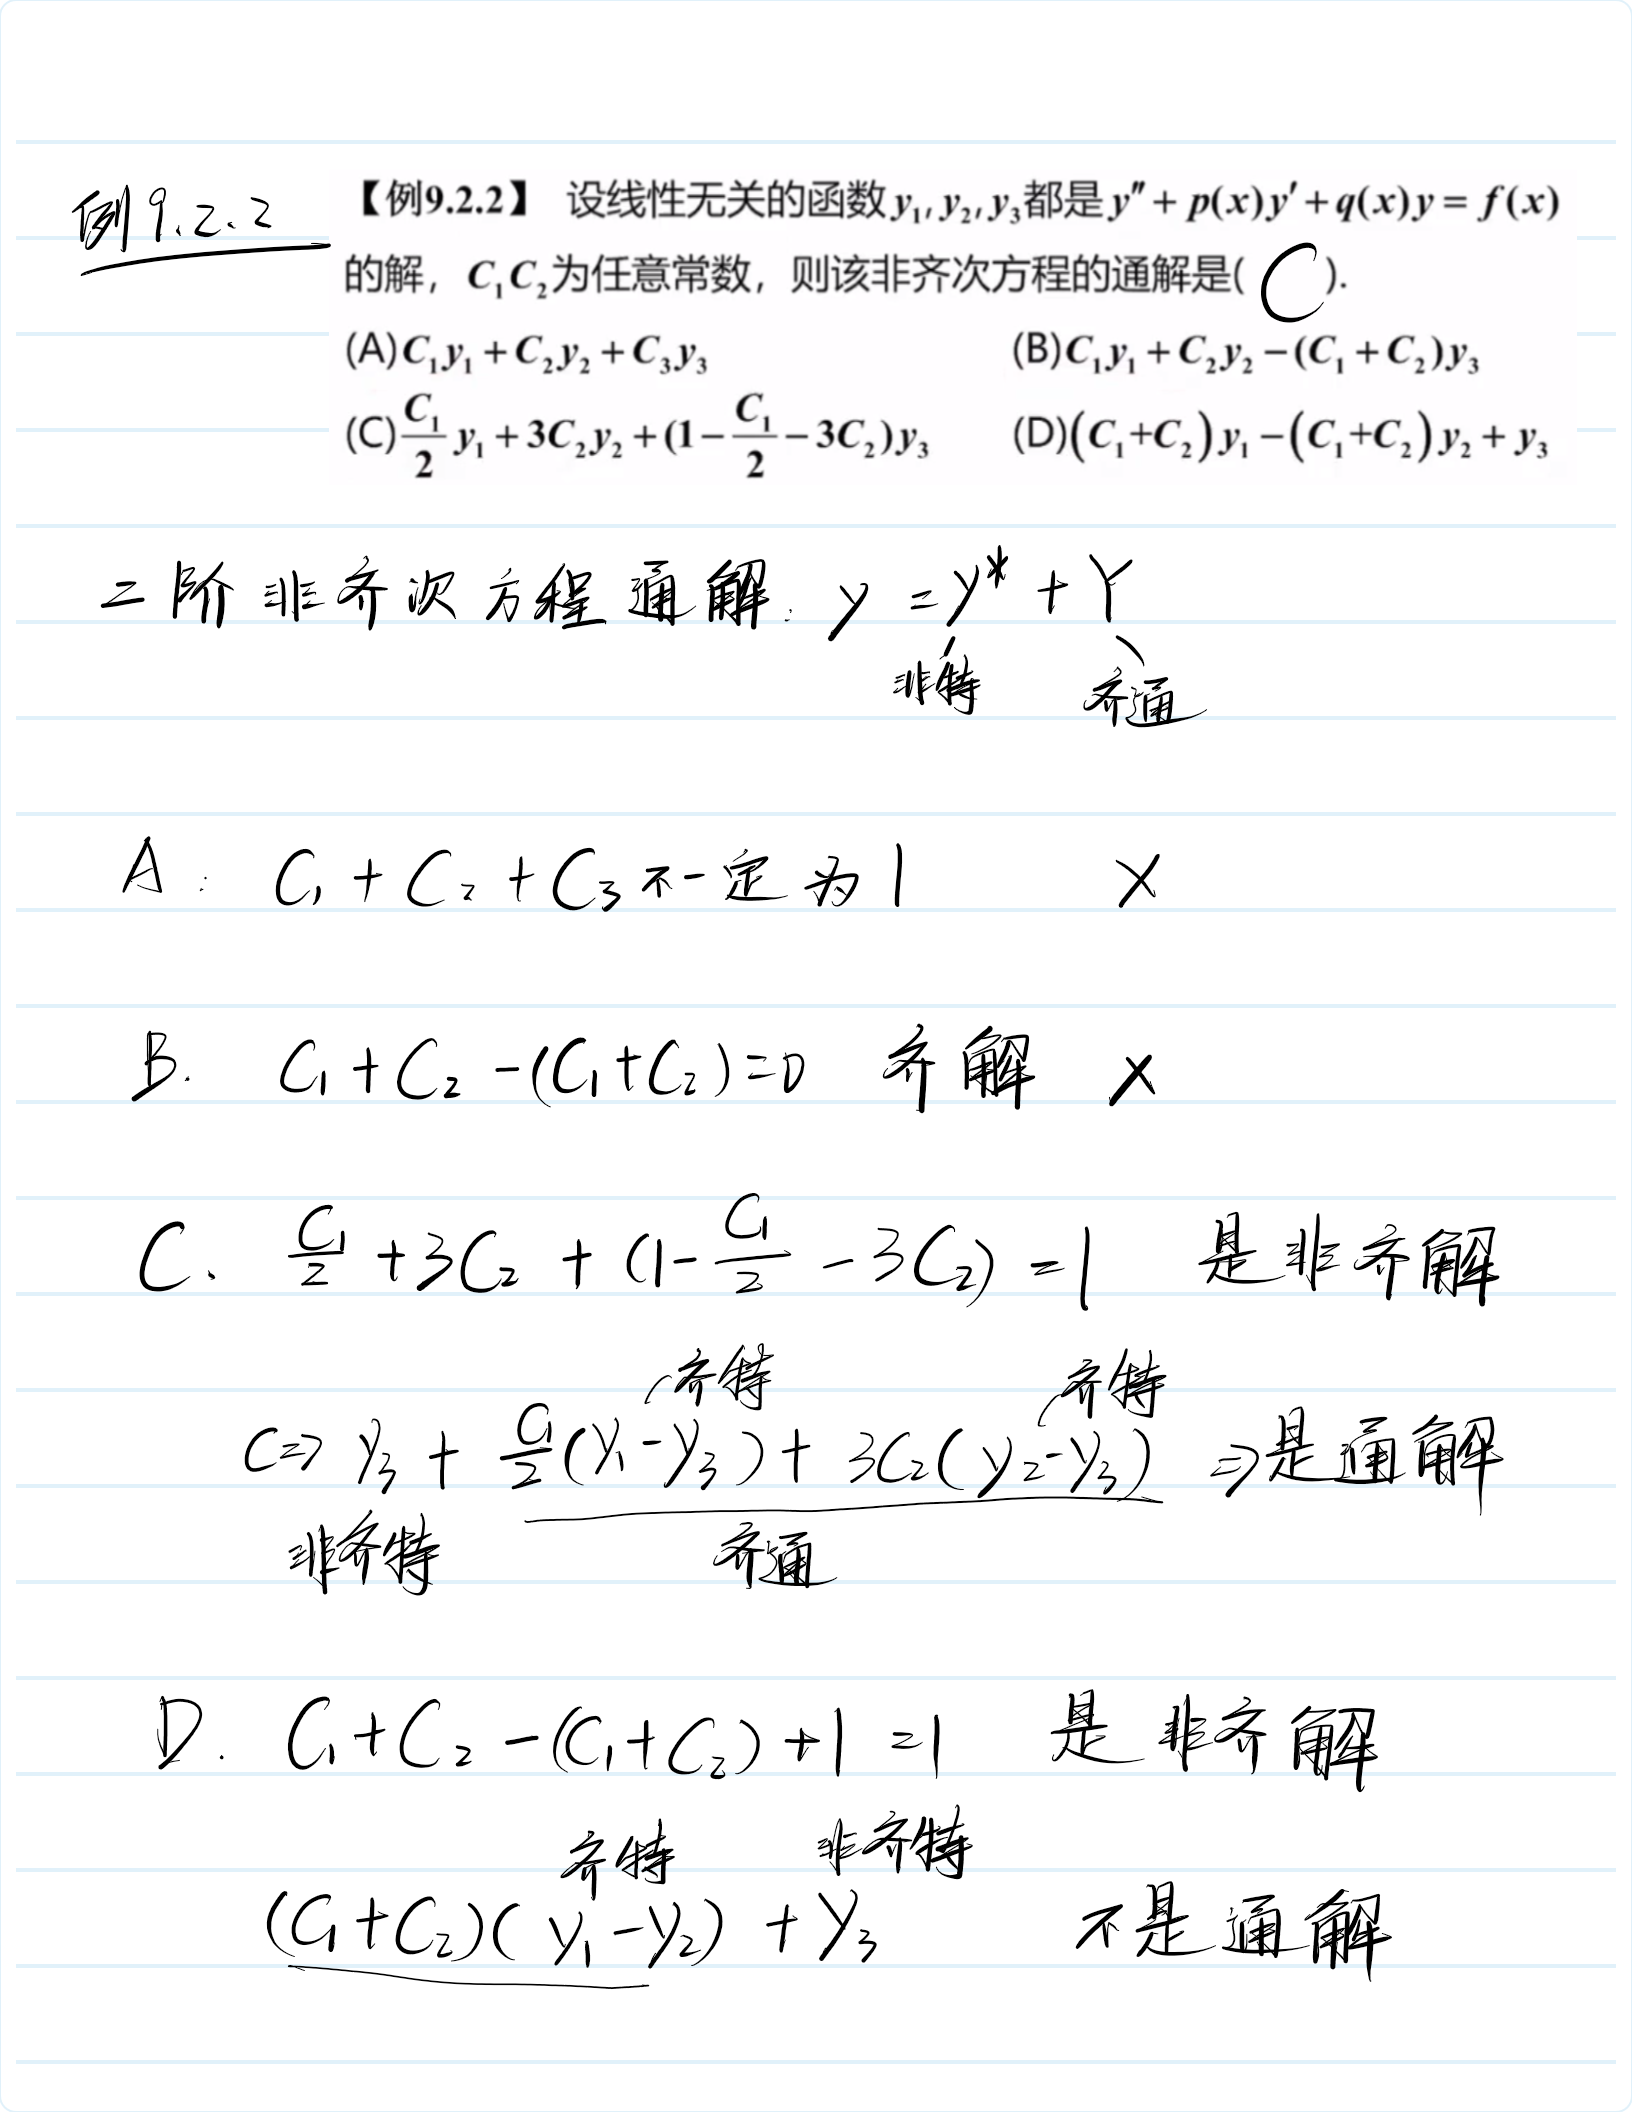 例9.2.2
【例9.2.2】 设线性无关的函数y₁, y₂, y₃都是y″ + p(x)y′ + q(x)y = f(x)
的解，C₁C₂为任意常数，则该非齐次方程的通解是( C ).
(A)C₁y₁ + C₂y₂ + C₃y₃ (B)C₁y₁ + C₂y₂ − (C₁ + C₂)y₃
(C)C₁/2 y₁ + 3C₂y₂ + (1 − C₁/2 − 3C₂)y₃ (D)(C₁+C₂)y₁ − (C₁+C₂)y₂ + y₃
二阶非齐次方程通解: y = y* + Y
非特 齐通
A: C₁ + C₂ + C₃ 不一定为1 ×
B. C₁ + C₂ − (C₁+C₂) = 0 齐解 ×
C. C₁/2 + 3C₂ + (1 − C₁/2 − 3C₂) = 1 是非齐解
齐特 齐特
C⇒ y₃ + C₁/2 (y₁ − y₃) + 3C₂(y₂ − y₃) ⇒是通解
非齐特 齐通
D. C₁ + C₂ − (C₁+C₂) + 1 = 1 是非齐解
齐特 非齐特
(C₁+C₂)(y₁ − y₂) + y₃ 不是通解